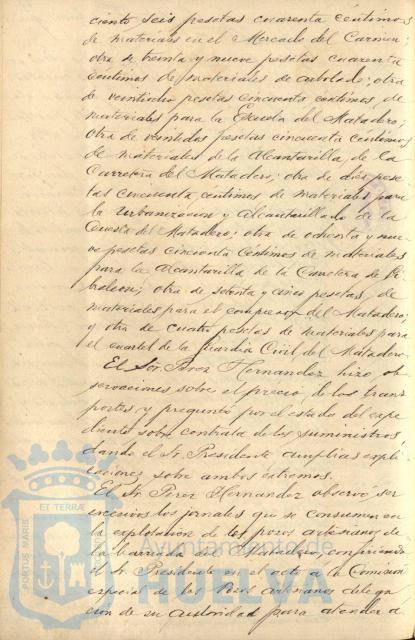 ciento seis pesetas cuarenta céntimos
de materiales en el Mercado del Carmen;
otra de treinta y nueve pesetas cuarenta
céntimos de materiales de arbolado; otra
de veintiocho pesetas cincuenta céntimos, de
materiales para la Escuela del Matadero;
otra de veintidos pesetas cincuenta céntimos
de materiales de la Alcantarilla, de la
Carretera del Matadero; otra de diez pese
tas cincuenta céntimos de materiales para
la urbanización y Alcantarillado de la
Cuesta del Matadero; otra de ochenta y nue
ve pesetas cincuenta céntimos de materiales
para la Alcantarilla de la Carretera de Gi
braleon; otra de setenta y cinco pesetas, de
materiales para el compresor del Matadero;
y otra de cuatro pesetas de materiales para
el cuartel de la Guardia Civil del Matadero
El Sor. Perez Hernandez hizo ob
servaciones sobre el precio de los trans
portes y preguntó por el estado del expe
diente sobre contrata de los suministros,
dando el Sr. Presidente amplias expli
caciones sobre ambos extremos.
El Sr. Perez Hernandez observó ser
excesivos los jornales que se consumen en
la explosion de los pozos artesianos de
la barriada del
el Sr. Presidente en el acto a la Comisión
especial de los Pozos Artesianos delega
ción de su autoridad para atender a
PORTUS MARIS ET TERRAE
Ayuntamiento de
HUELVA